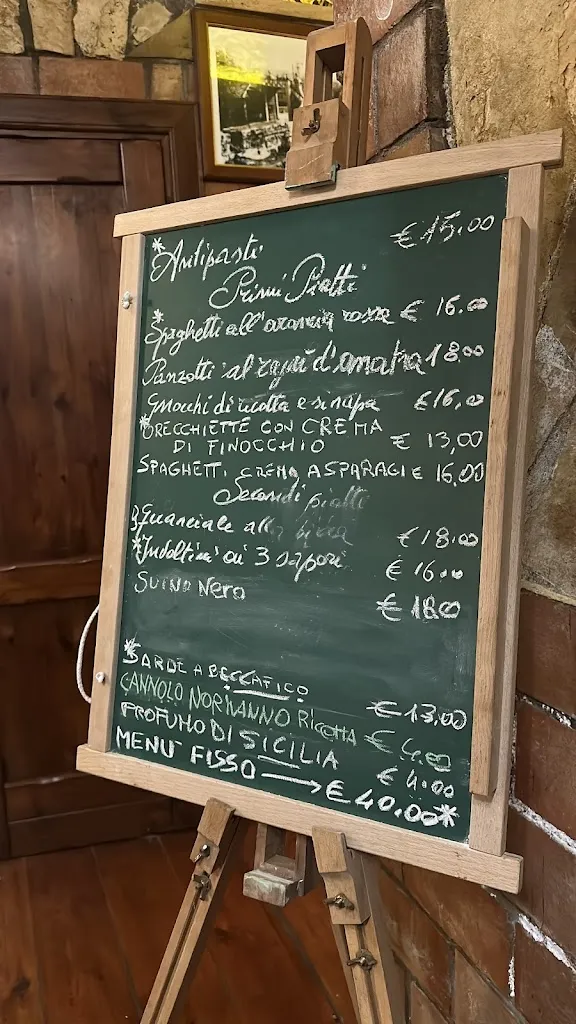 *Antipasti € 15.00
Primi Piatti
*Spaghetti all'arancia rossa € 16.00
Panzotti al ragù d'anatra 18.00
Gnocchi di ricotta e senape €16,00
*ORECCHIETTE CON CREMA
DI FINOCCHIO € 13,00
SPAGHETTI CREMA ASPARAGI € 16,00
Secondi piatti
Guanciale alla €18.00
*Involtini ai 3 sapori € 16.00
SUINO NERO € 18.00
*SARDE A BECCAFICO € 13,00
CANNOLO NORMANNO RICOTTA € 4.00
PROFUMO DI SICILIA € 4.00
MENU' FISSO → € 40.00*